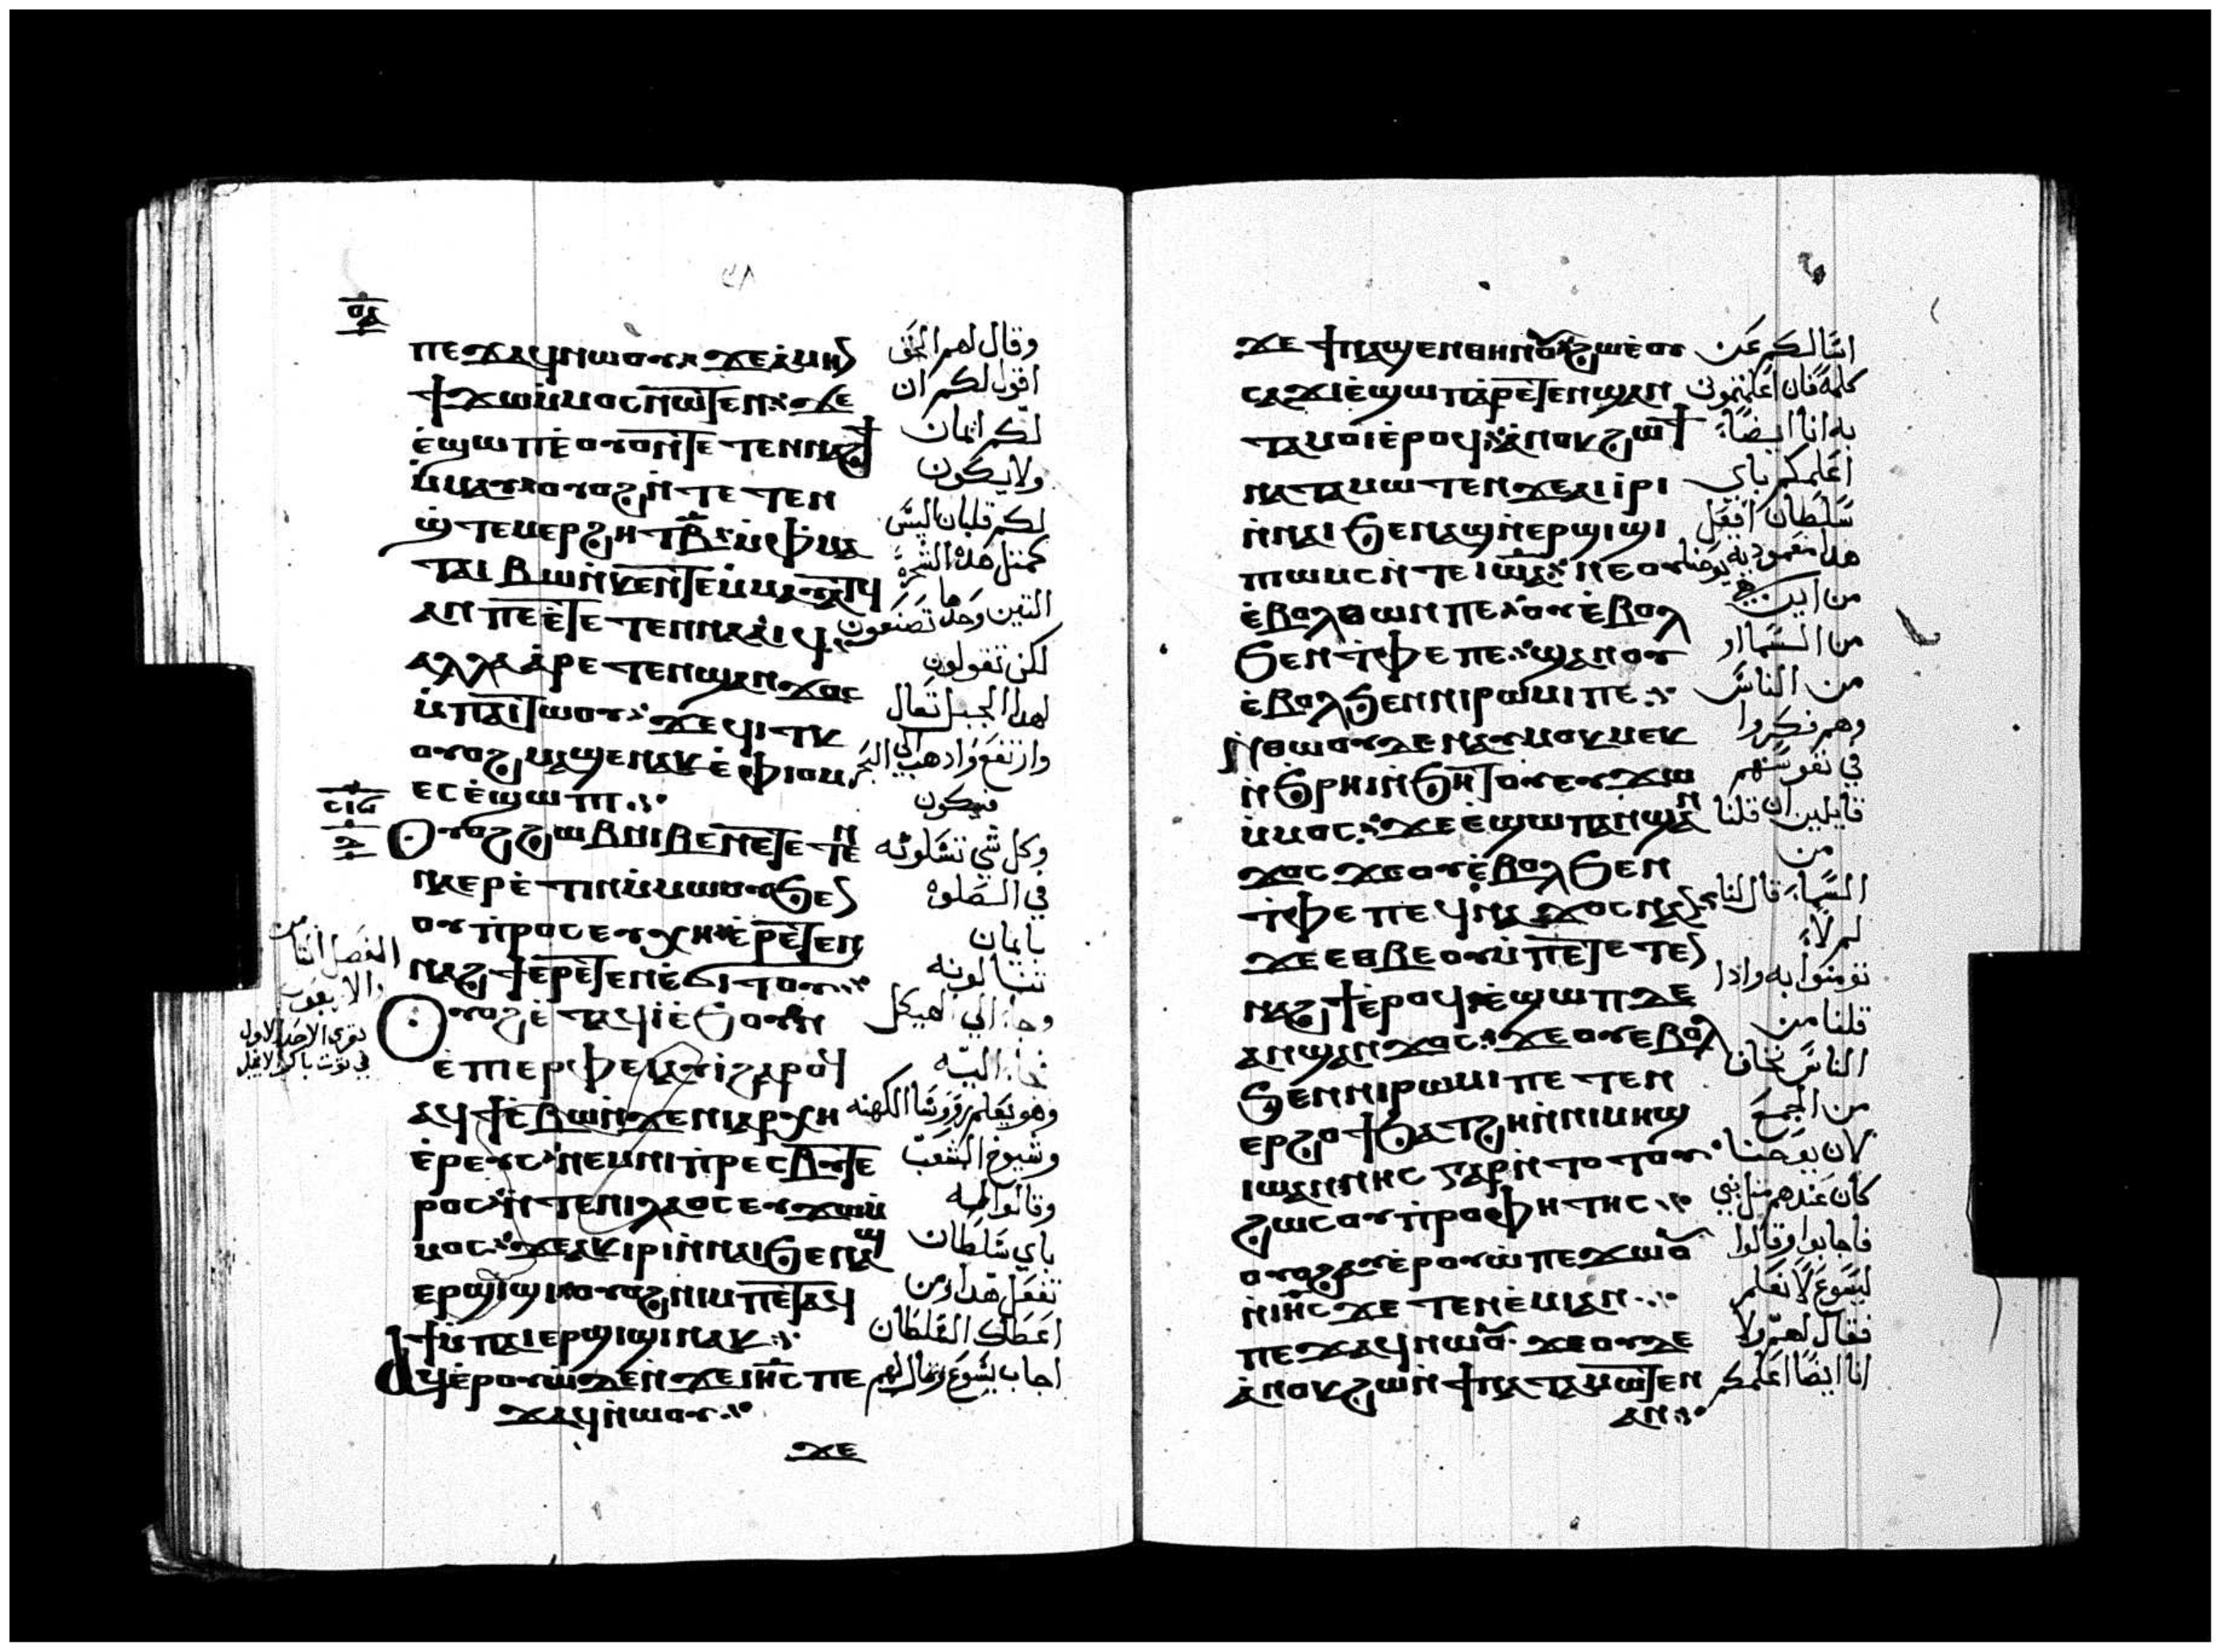 ⲟⲁ
ⲡⲉϫⲁϥⲛⲱⲟⲩ ϫⲉⲁⲙⲏⲛ وقال لهم الحق
ϯϫⲱⲙⲙⲟⲥⲛⲱⲧⲉⲛ ϫⲉ اقول لكم ان
ⲉϣⲱⲡⲉⲟⲩⲟⲛⲧⲉⲧⲉⲛⲛⲁϩϯ لكم ايمان
ⲙⲙⲁⲩⲟⲩⲟϩⲛⲧⲉⲧⲉⲛ ولا يكون
ϣⲧⲉⲙⲉⲣϩⲏⲧⲃ ⲙⲫⲙⲁ لكم قلبان ليس
ⲧⲁⲓⲃⲱⲛⲕⲉⲛⲧⲉⲙⲙⲁⲩⲁⲧϥ كمثل هذه الشجرة
ⲁⲛⲡⲉⲉⲧⲉⲧⲉⲛⲛⲁⲁⲓϥ التين وحدها تصنعون
ⲁⲗⲗⲁⲁⲣⲉⲧⲉⲛϣⲁⲛϫⲟⲥ لكن تقولون
ⲙⲡⲁⲓⲧⲱⲟⲩ ϫⲉϥⲓⲧⲕ لهذا الجبل تعال
ⲟⲩⲟϩⲙⲁϣⲉⲛⲁⲕⲉⲫⲓⲟⲙ وارتفع واذهب الي البحر
ⲉⲥⲉϣⲱⲡⲓ فيكون
ⲥⲓⲋ
ⲟⲩⲟϩϩⲱⲃⲛⲓⲃⲉⲛⲉⲧⲉⲧⲉⲛ وكل شي تسالونه
ⲛⲁⲉⲣⲉⲧⲓⲛⲙⲙⲱⲟⲩϧⲉⲛ في الصلوة
ⲟⲩⲡⲣⲟⲥⲉⲩⲭⲏ ⲉⲣⲉⲧⲉⲛ بايمان
ⲛⲁϩϯⲉⲣⲉⲧⲉⲛⲉϭⲓⲧⲟⲩ تنالونه
ⲟⲩⲟϩⲉⲧⲁϥⲓⲉϧⲟⲩⲛ وجا الي الهيكل
ⲉⲡⲓⲉⲣⲫⲉⲓⲁⲩⲓϩⲁⲣⲟϥ فجا اليه
ⲁϥϯⲥⲃⲱⲛϫⲉⲛⲓⲁⲣⲭⲏ وهو يعلم روسا الكهنه
ⲉⲣⲉⲩⲥ ⲛⲉⲙⲛⲓⲡⲣⲉⲥⲃⲩⲧⲉ وشيوخ الشعب
ⲣⲟⲥ ⲛⲧⲉⲡⲓⲗⲁⲟⲥⲉⲩϫⲱⲙ وقالوا له
ⲙⲟⲥ ϫⲉⲁⲕⲓⲣⲓⲛⲛⲁⲓϧⲉⲛⲁϣ باي سلطان
ⲉⲣϣⲓϣⲓ ⲟⲩⲟϩⲛⲓⲙⲡⲉⲧⲁϥ تفعل هذا ومن
ϯⲙⲡⲁⲓⲉⲣϣⲓϣⲓⲛⲁⲕ اعطاك السلطان
ⲁϥⲉⲣⲟⲩⲱⲇⲉⲛϫⲉⲓⲏⲥⲡⲉ اجاب يسوع وقال لهم
ϫⲁϥⲛⲱⲟⲩ
ϫⲉ
في توت باكر الانجيل
ϫⲉϯⲛⲁϣⲉⲛⲑⲏⲛⲟⲩ ϩⲱⲉⲟⲩ اسالكم عن
ⲥⲁϫⲓⲉϣⲱⲡⲁⲣⲉⲧⲉⲛϣⲁⲛ كلمة فان اعلمتموني
ⲧⲁⲙⲟⲓⲉⲣⲟϥ ⲁⲛⲟⲕϩⲱϯ به انا ايضا
ⲛⲁⲧⲁⲙⲱⲧⲉⲛϫⲉⲁⲓⲓⲣⲓ اعلمكم باي
ⲛⲛⲁⲓϧⲉⲛⲁϣⲛⲉⲣϣⲓϣⲓ سلطان افعل
ⲡⲓⲱⲙⲥⲛⲧⲉⲓⲱⲁ ⲛⲉⲟⲩ هذا معموديه يوحنا
ⲉⲃⲟⲗⲑⲱⲛⲡⲉ ⲟⲩⲉⲃⲟⲗ من اين
ϧⲉⲛⲧⲫⲉⲡⲉ ϣⲁⲛⲟⲩ من السما او
ⲉⲃⲟⲗϧⲉⲛⲛⲓⲣⲱⲙⲓⲡⲉ من الناس
ⲛⲑⲱⲟⲩⲇⲉⲛⲁⲩⲙⲟⲕⲙⲉⲕ وهم فكروا
ⲛϧⲣⲏⲓⲛϧⲏⲧⲟⲩⲉⲩϫⲱ في نفوسهم
ⲙⲙⲟⲥ ϫⲉⲉϣⲱⲡⲁⲛϣⲁⲛ قايلين ان قلنا من
ϫⲟⲥϫⲉⲟⲩⲉⲃⲟⲗϧⲉⲛ
ⲧⲫⲉⲡⲉϥⲛⲁϫⲟⲥⲛⲁⲛ السما قال لنا
ϫⲉⲉⲑⲃⲉⲟⲩⲙⲡⲉⲧⲉⲧⲉⲛ لم لا
ⲛⲁϩϯⲉⲣⲟϥ ⲉϣⲱⲡⲇⲉ تومنوا به واذا
ⲁⲛϣⲁⲛϫⲟⲥ ϫⲉⲟⲩⲉⲃⲟⲗ قلنا من
ϧⲉⲛⲛⲓⲣⲱⲙⲓⲡⲉⲧⲉⲛ الناس نخاف
ⲉⲣϩⲟϯϧⲁⲧϩⲏⲛⲛⲓⲙⲏϣ من الجمع
ⲓⲱⲁⲛⲛⲏⲥⲅⲁⲣⲛⲧⲟⲧⲟⲩ لان يوحنا
ϩⲱⲥⲟⲩⲡⲣⲟⲫⲏⲧⲏⲥ كان عندهم مثل نبي
ⲟⲩⲟϩⲁⲩⲉⲣⲟⲩⲱⲡⲉϫⲱⲟⲩ فاجابوا وقالوا
ⲛⲓⲏⲥϫⲉⲧⲉⲛⲉⲙⲓⲁⲛ ليسوع لا نعلم
ⲡⲉϫⲁϥⲛⲱⲟⲩ ϫⲉⲟⲩⲇⲉ فقال لهم ولا
ⲁⲛⲟⲕϩⲱⲛϯⲛⲁⲧⲁⲙⲱⲧⲉⲛ انا ايضا اعلمكم
ⲁⲛ